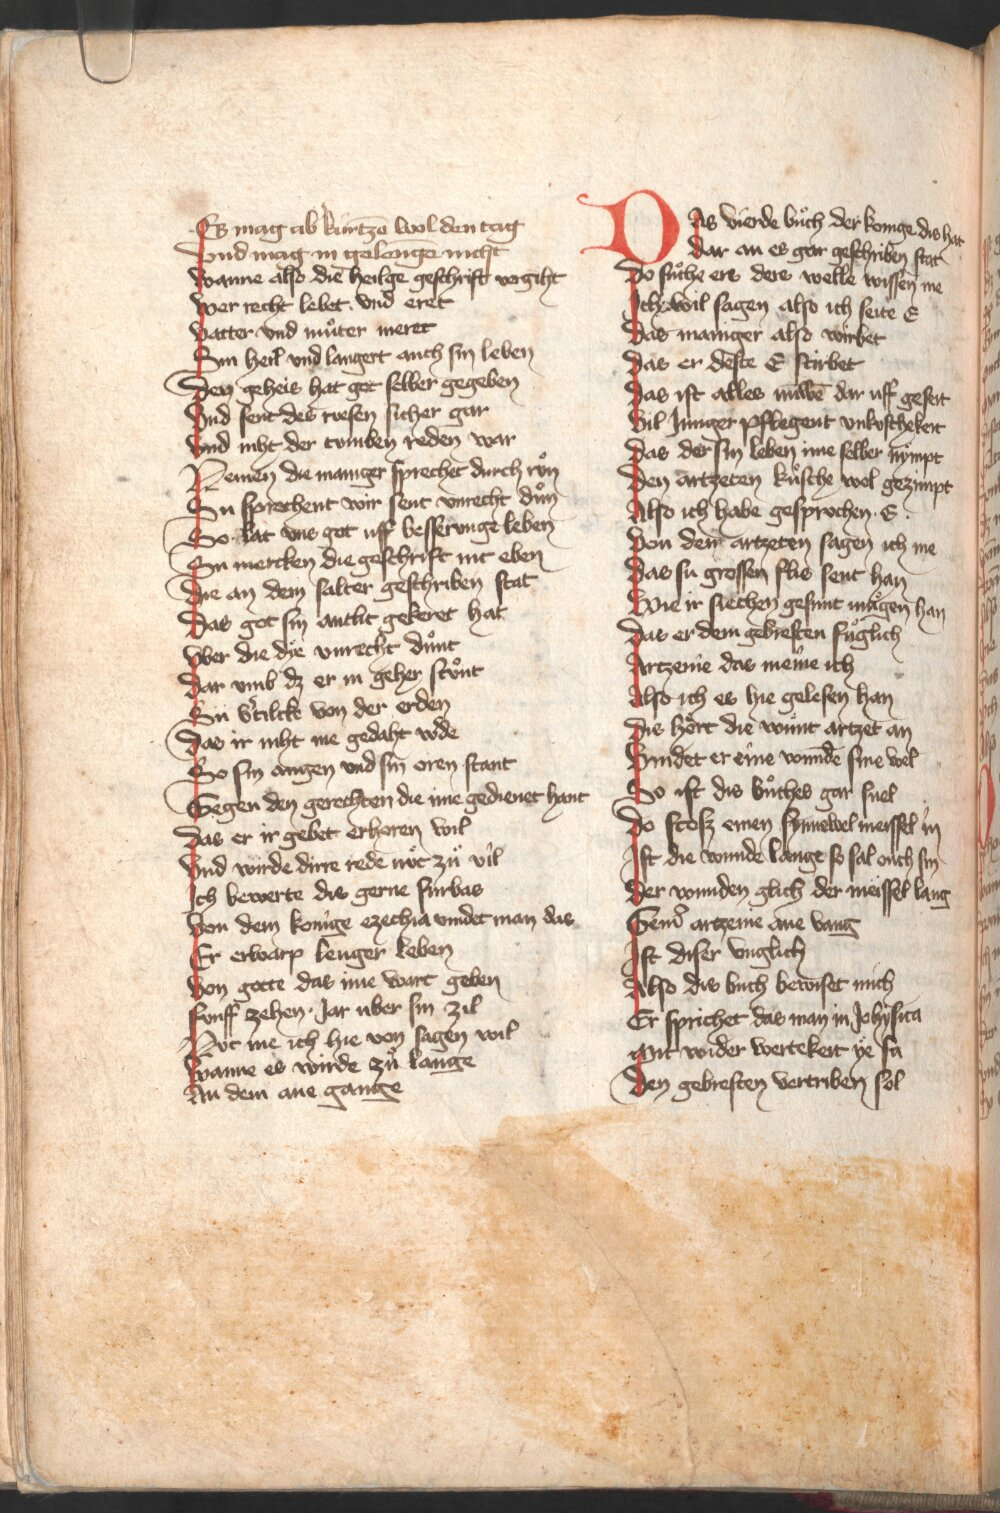 Es mag ab kúrtzē wol den tag
Vnd mag in gelenge nicht
Wanne also die heilge geschrift vergiht
Wer recht lebet vnd eret
Vatter vnd můter meret
Sin heil vnd langert auch sin leben
Den geheis hat got selber gegeben
Vnd sent des wesen sicher gar
Vnd niht der tumben reden war
Nemen die maniger sprechet durch rům
Su sprechent wir sent vnrecht důn
So lat vns got uff besserunge leben
Su mercken die geschrift nit eben
Die an dem salter geschriben stat
Das got sin antlit gekeret hat
Vber die die vnrecht důnt
Dar vmb dz er in geher stůnt
Sú v'tilcke von der erden
Das ir niht me gedaht w'de
So sin augen vnd sin oren stant
Gegen den gerechten die ime gedienet hant
Das er ir gebet erhoren wil
Vnd wirde dirre rede nút zů vil
Ich bewerte dis gerne furbas
Von dem konige ezechia vindet man das
Er erwarp lenger leben
Von gotte das ime wart geben
Funff zehen Jar uber sin zil
Nút me ich hie von sagen wil
Wanne es wirde zů lange
An dem ane gange
Das vierde bůch der konige dis hat
Dar an es gar geschriben stat
Do sůche ers dere welle wissen me
Ich wil sagen also ich seite E
Das maniger also wirbet
Das er deste E stirbet
Das ist alles nuwē dar uff geseit
Vil Juniger pflegent vnkuschekeit
Das der sin leben ime selber nympt
Den artzeten kůsche wol gezimpt
Also ich habe gesprochen E
Von dem artzeten sagen ich me
Das su grossen flis sent han
Wie ir siechen gesunt můgen han
Das er dem gebresten fůglich
Artzenie das meine ich
Also ich es hie gelesen han
Dis hört die wunt artzet an
Vindet er eine wunde sine wel
So ist dis bůches gar snel
Do stosz einen synnewel meissel in
Ist die wunde lange so sal ouch sin
Der wunden glich der meissel lang
Sem' artzenie ane vang
Ist diser vnglich
Also dis buch bewiset mich
Er sprichet das man in Johysica
Mit wider wertekeit ye sa
Den gebresten vertriben sol